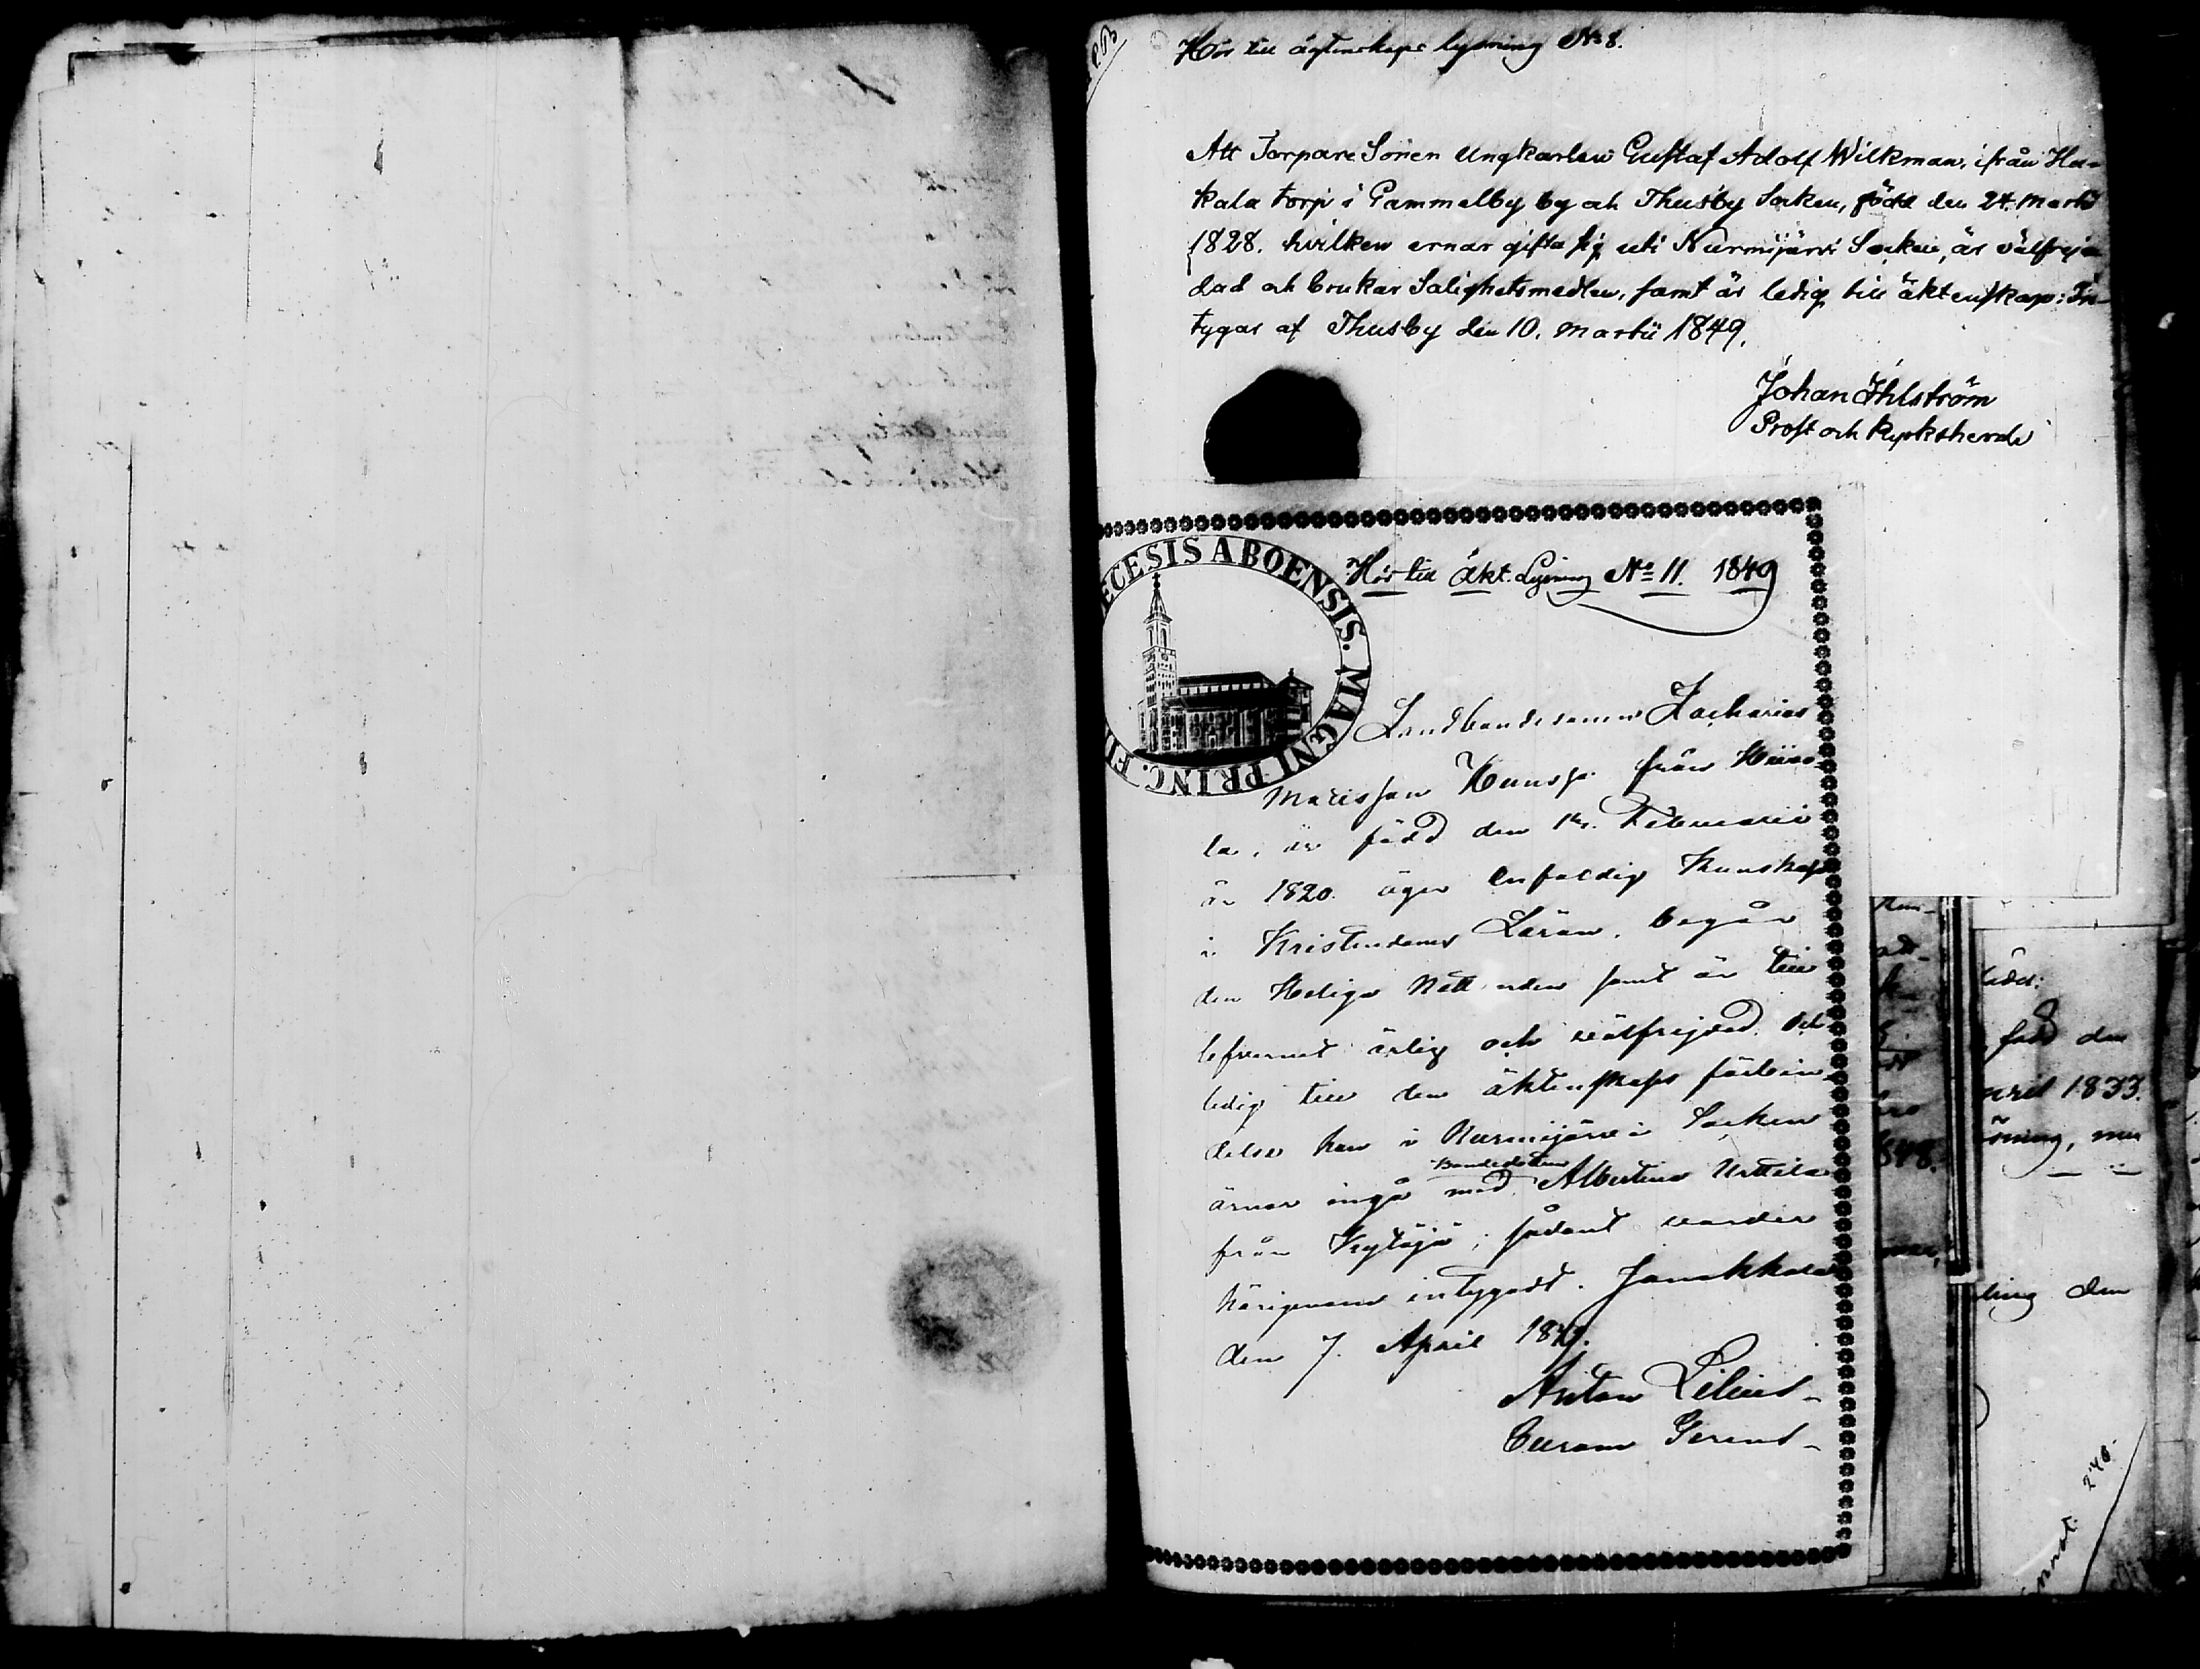 Hör till ägtenskaps lysning No 8.
Att Torpare Sonen Ungkarlen Gustaf Adolf Wilkman, ifrån Ha-
kala torp i Gammelby by och Thusby Socken, född den 24. Martii
1828. hvilken ernar gifta sig uti Nurmijärvi Socken, är välfrej-
dad och brukar Salighetsmedlen, samt är ledig till äktenskap: In-
tygar af Thusby den 10. Martii 1849.
Johan Ihlström
Prost och Kyrkoherde
ECESIS ABOENSIS. MAGNI PRINC. FI
Hör till Äkt. Lysning No 11. 1849
Landbondesonen Zacharias
Matisson från
la, är född den Februarii
år 1820. äger enfaldig Kunskap
i Kristendoms Läran, begår
den Heliga Nattvarden samt är till
lefvernet ärlig och välfrejdad och
ledig till den äktenskaps förbin-
delse han i Nurmijärvi Socken
Bondedottren
ärnar ingå med Albertina Uttila
från Kytäjä; sådant varder
härigenom intygadt. Janakkala
den 7. April 1849.
Anton Lilius
Curam Gerens
född den
1833.
848.
ling den
246.